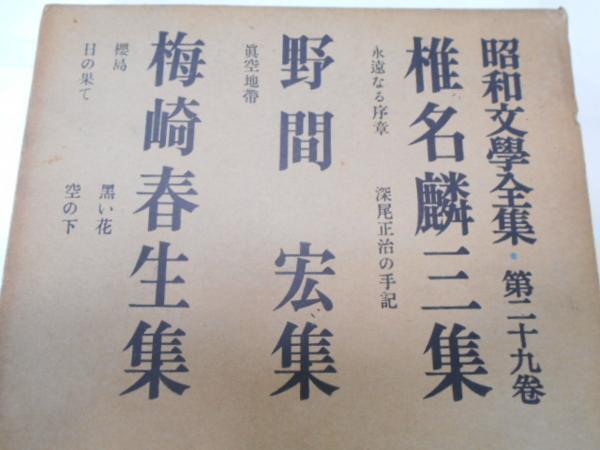 昭和文學全集・第二十九巻
椎名麟三集
永遠なる序章
深尾正治の手記
野間 宏集
眞空地帶
梅崎春生集
櫻島
日の果て
黒い花
空の下